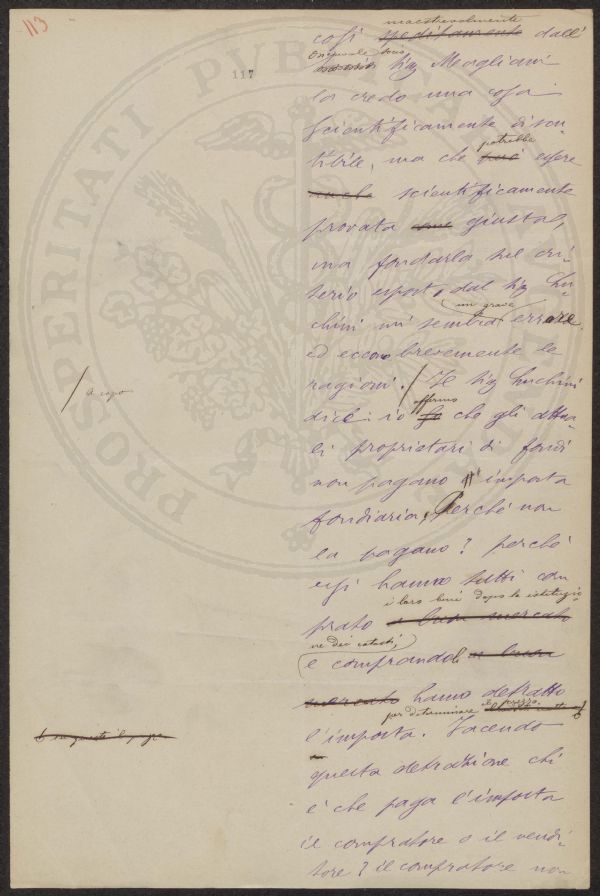 113
117
PROSPERITATI PVBLICAE
maestrevolmente
così speditamente dall'
Onorevole
Sig Magliani
la credo una cosa
scientificamente discu-
potrebbe
tibile, ma che può essere
anche scientificamente
provata giusta,
ma fondarla sul cri-
terio esposto dal Sig Lu-
un grave
chini mi sembra errore.
ed eccone brevemente le
ragioni. / Il Sig Luchini
a capo
affermo
dice: io so che gli attua-
li proprietari di fondi
non pagano l'imposta
fondiaria, Perchè non
la pagano? perchè
essi hanno tutti com
i loro beni dopo la istituzio-
prato a buon mercato
ne dei catasti,
e comprandoli a buon
mercato hanno detratto
per determinare il prezzo
l'imposta. Facendo
questa detrazione chi
è che paga l'imposta
il compratore o il vendi-
tore? il compratore non